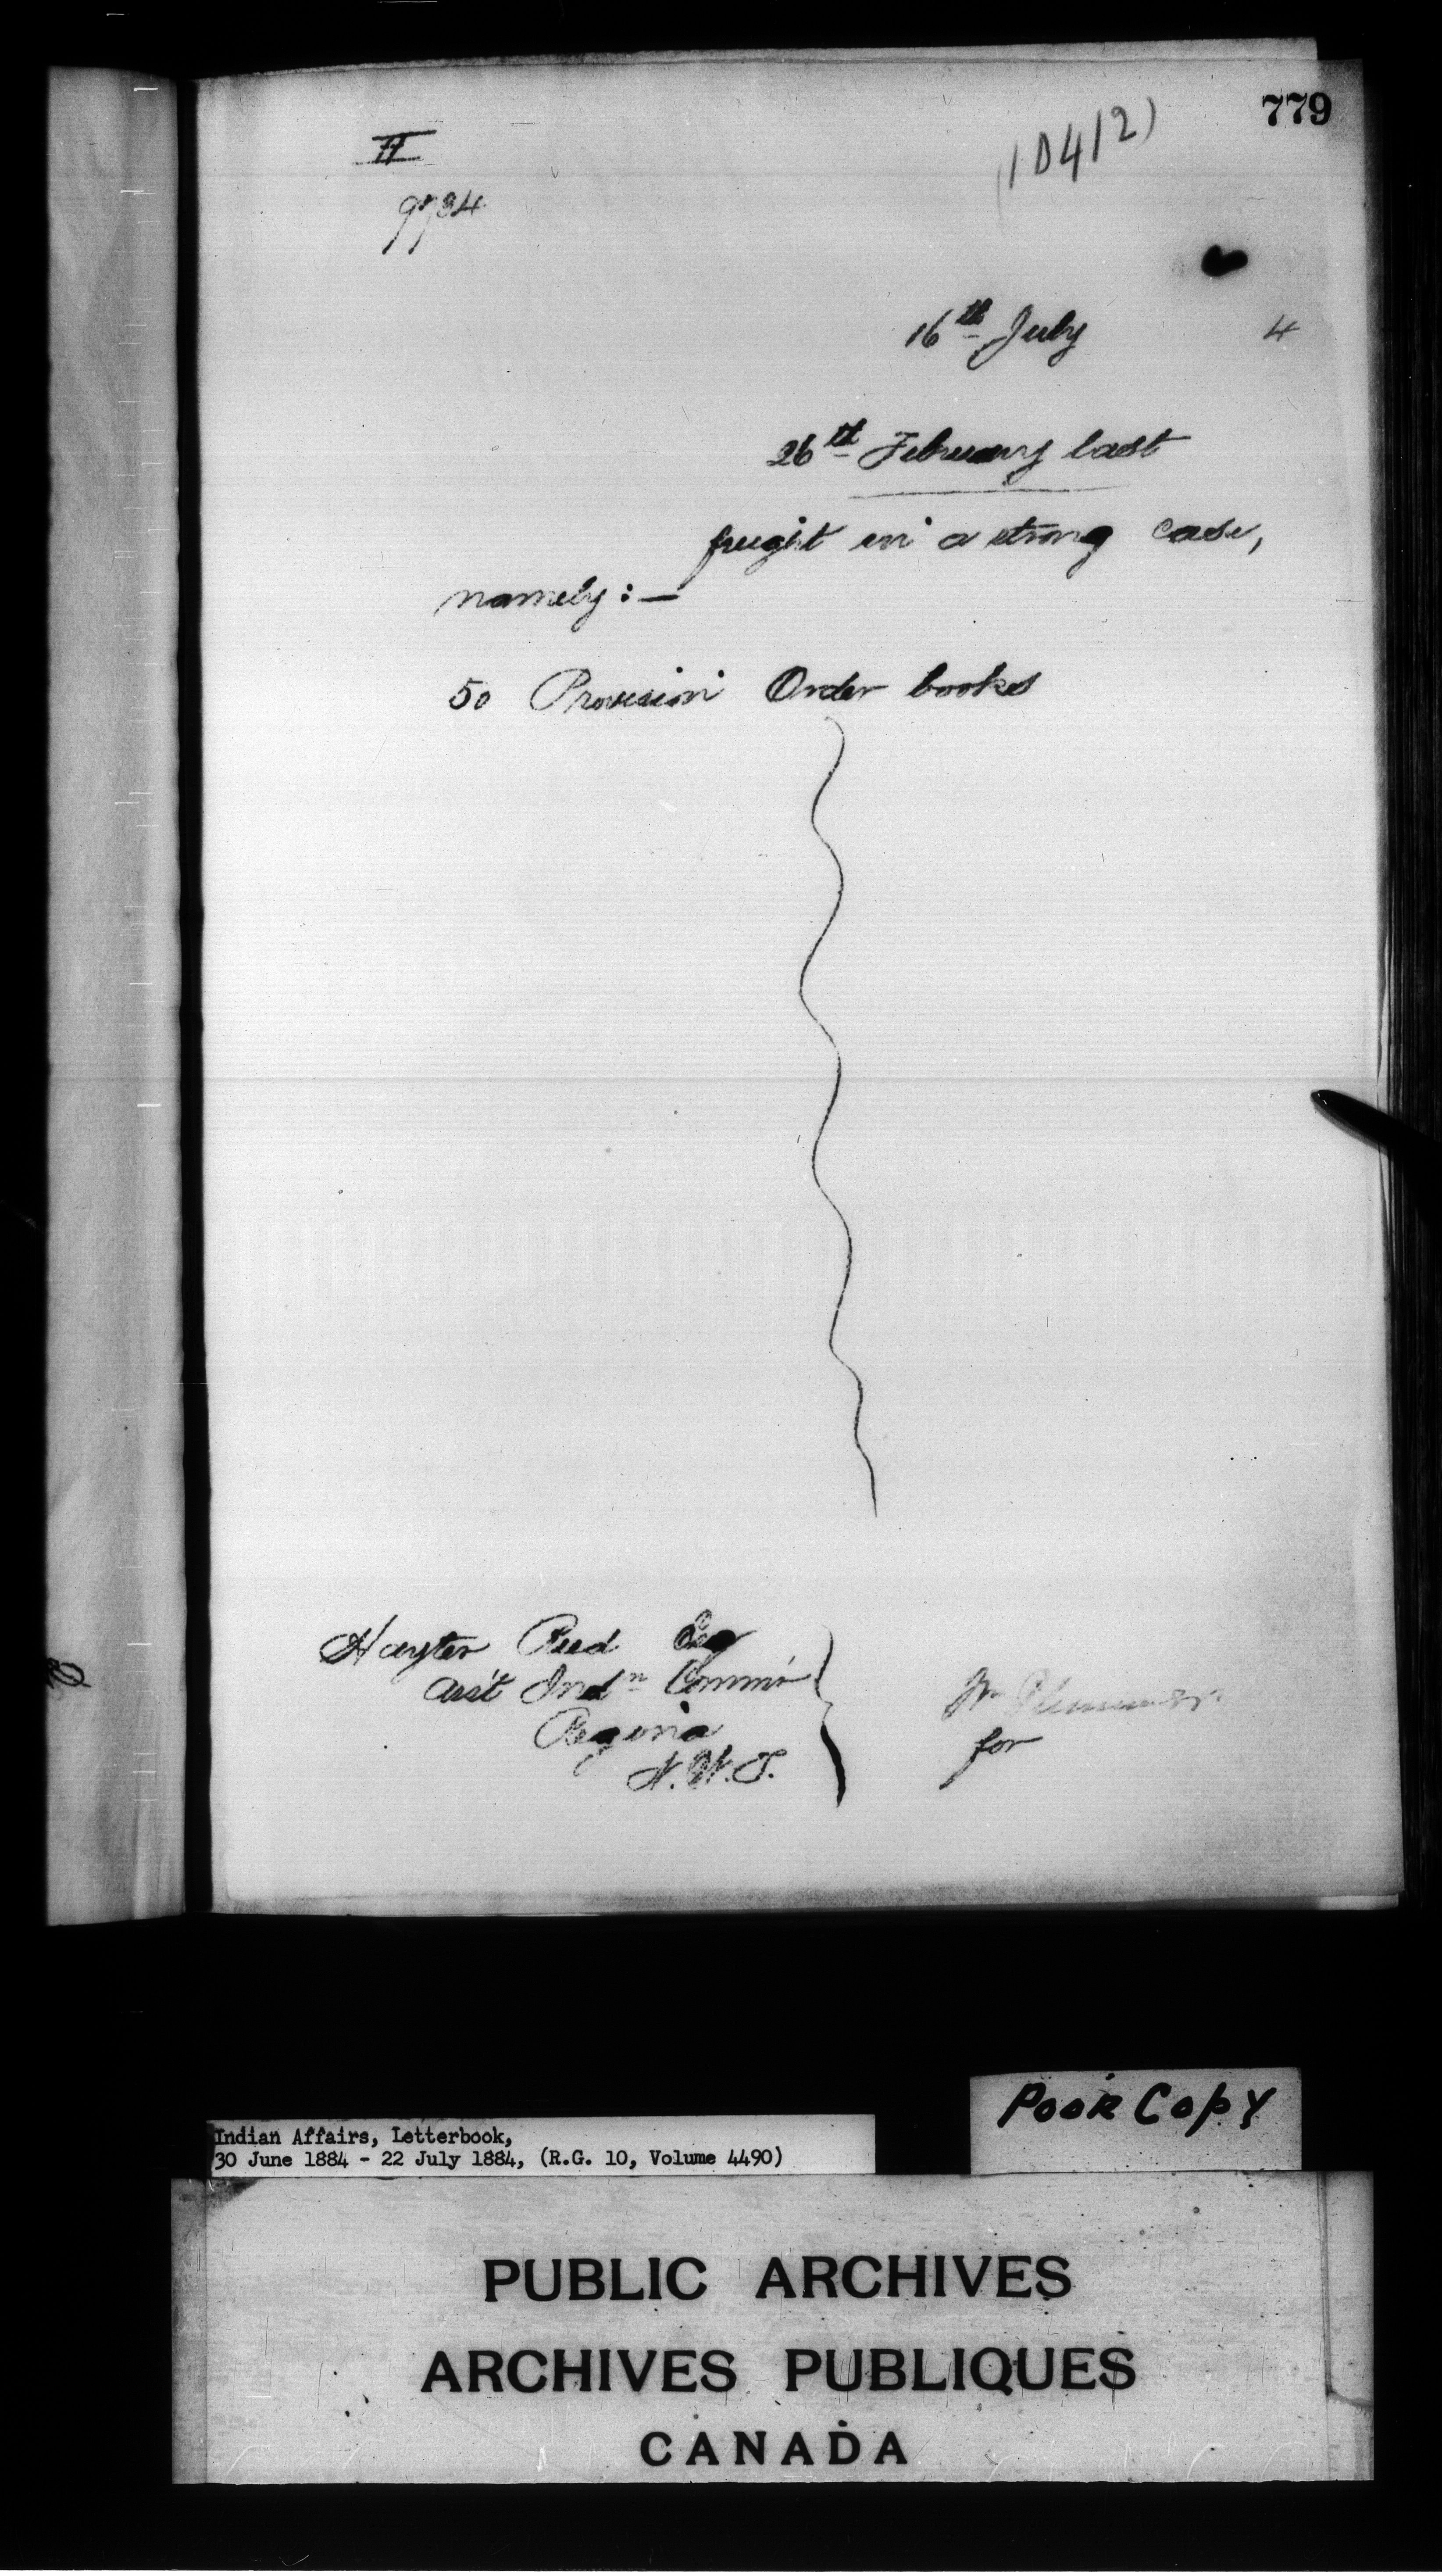 779
(10412)
II
9734
16th July 4
26th February last
freight in a strong case,
namely :—
50 Provision Order books
Hayter Reed Esq
Ass't Indn Commr
Regina
N.W.T.
Wm Plummer
for
Poor Copy
Indian Affairs, Letterbook,
30 June 1884 - 22 July 1884, (R.G. 10, Volume 4490)
PUBLIC ARCHIVES
ARCHIVES PUBLIQUES
CANADA